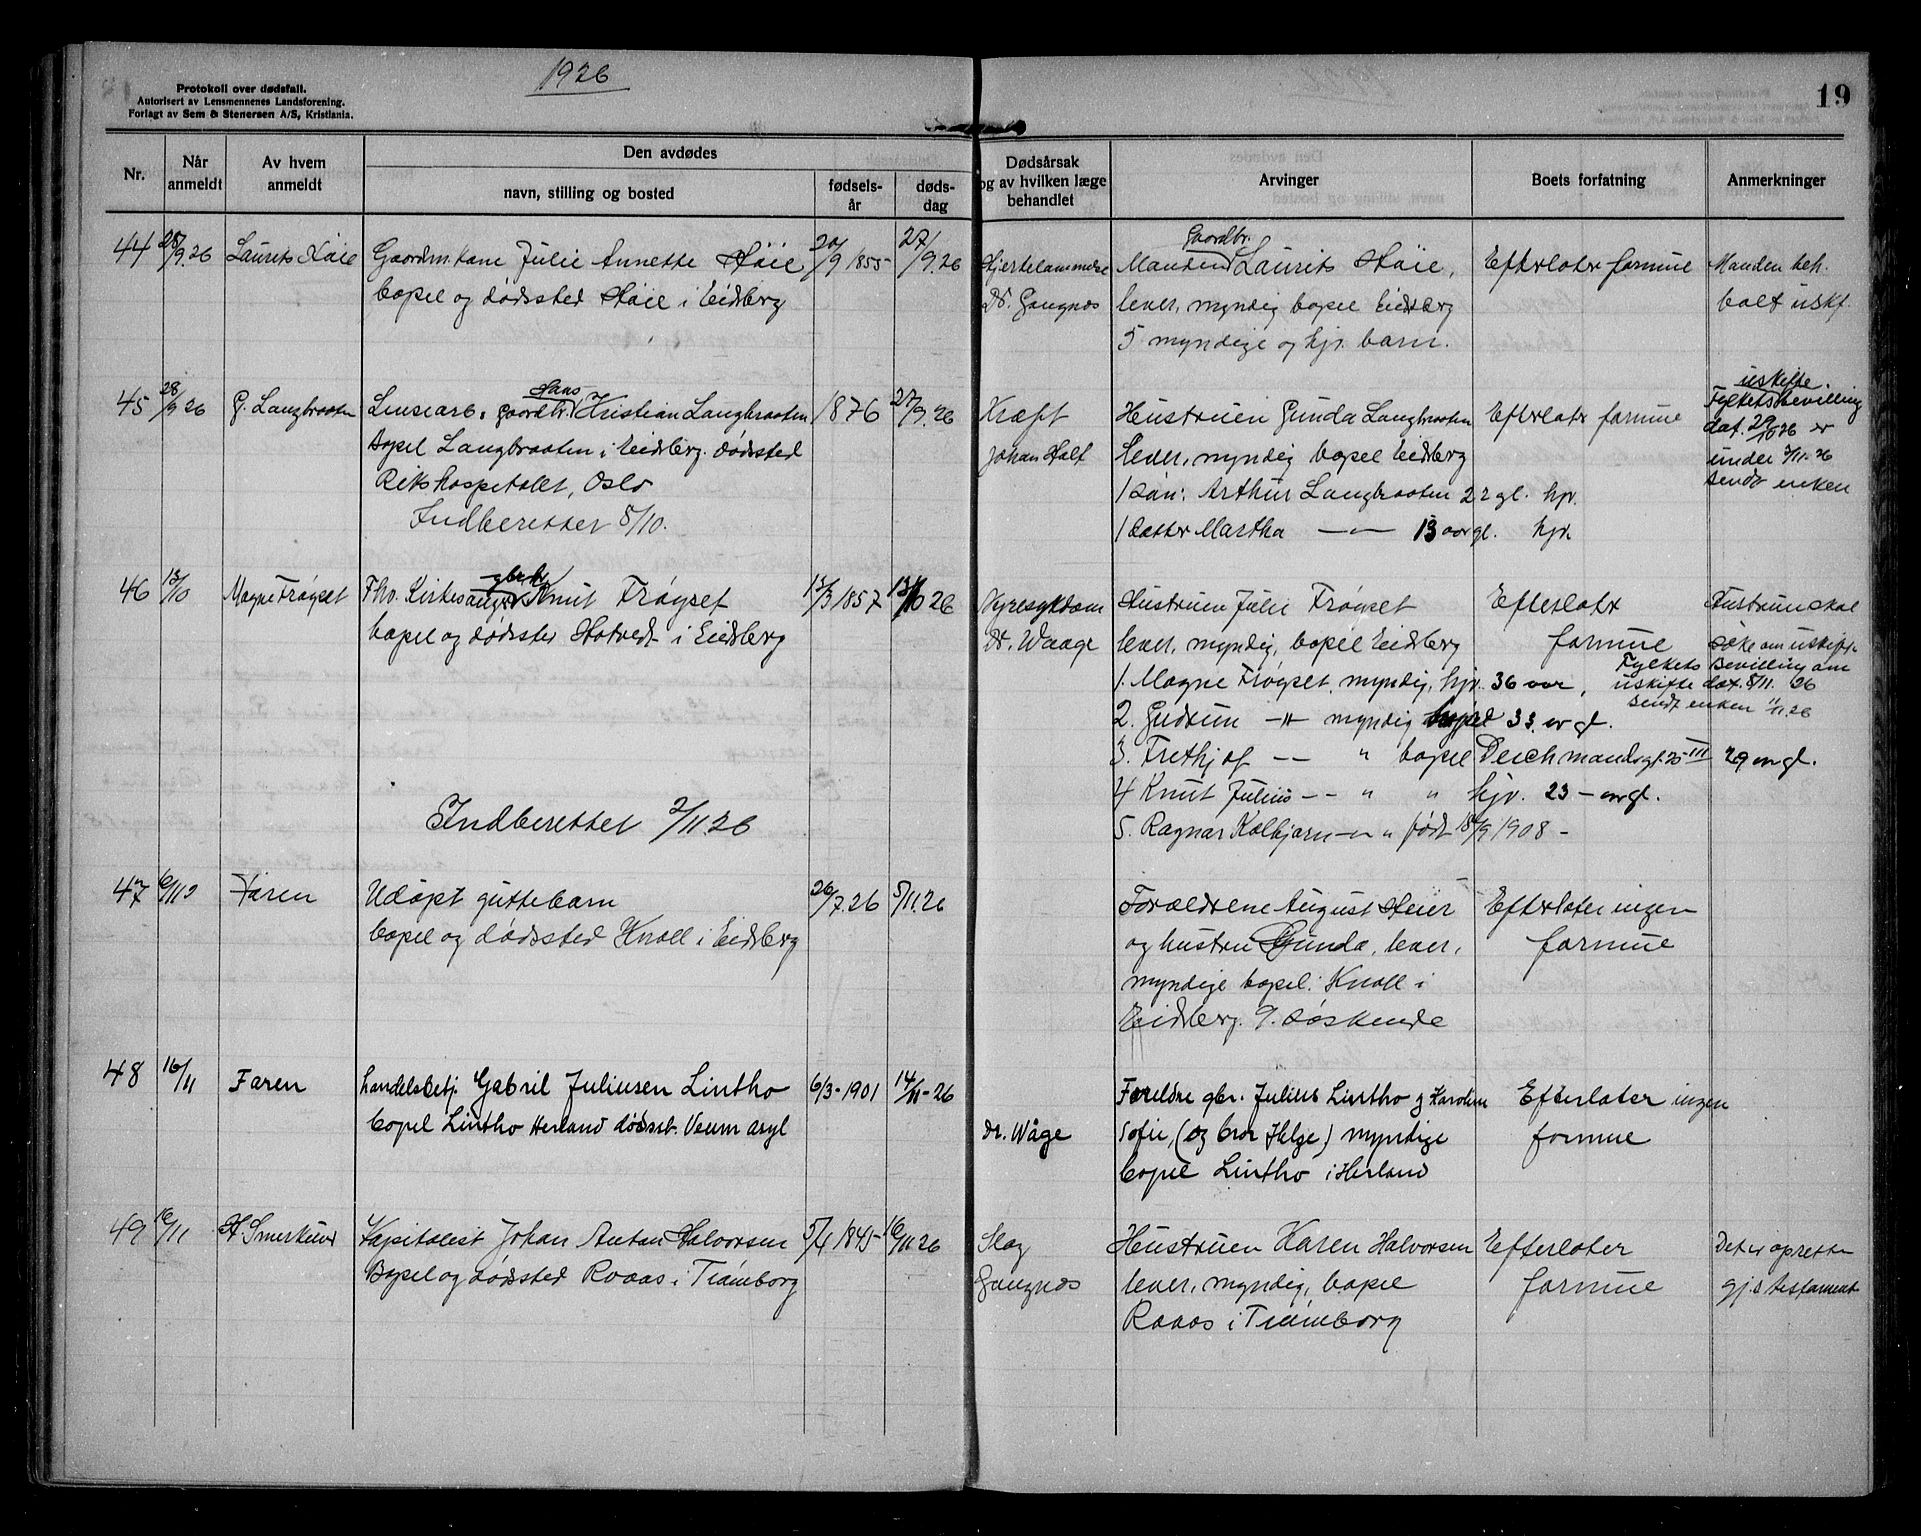 1926
Protokoll over dødsfall.
Autorisert av Lensmennenes Landsforening.
Forlagt av Sem & Stenersen A/S, Kristiania.
19
Nr.
Når anmeldt
Av hvem anmeldt
Den avdødes
navn, stilling og bosted
fødsels-år
døds-dag
Dødsårsak og av hvilken læge behandlet
Arvinger
Boets forfatning
Anmerkninger
44 28/9.26 Laurits Høie Gaardm. kone Julie Annette Høie 20/9 1855 27/9.26
bopel og dødssted Høie i Eidsberg
Hjertelammelse Gaardbr.
Manden Laurits Høie, Efterlater formue Manden beh.
Dr. Gangnæs lever, myndig bopel Eidsberg
5 myndige og hjv. barn.
45 28/9 26 G. Langbraaten gaardbr. Hans Kristian Langbraaten 1876 27/9.26
Bopel Langbraaten i Eidsberg. dødssted
Rikshospitalet, Oslo
Indberettet 5/10.
Kræft Hustruen Gunda Langbraaten Efterlater formue uskifte.
Fylketsbevilling
Johan Holt lever, myndig bopel Eidsberg er
under 2/11.26
1 søn: Arthur Langbraaten 22 gl. hjv. sendt enken
1 datter Martha —"— 13 aar gl. hjv.
46 13/10 Magne Frøyset Fhv. Kirkesanger gbr. Knut Frøyset 13/3 1857 13/10 26
bopel og dødssted Hotvedt i Eidsberg
Nyresykdom Hustruen Julie Frøyset Efterlater Hustruen skal
Dr. Waage lever, myndig, bopel Eidsberg formue søke om uskifte.
Fylkets Bevilling om
1. Magne Frøyset, myndig, hjv. 36 aar, uskifte dat. 5/11. 26
sendt enken 11/11.26
2. Gudrun —"— myndig 33 ar gl.
3. Frithjof —— " bopel Deichmandsgt. 20 III 29 ar gl.
4 Knut Julius —— " " hjv. 23 – ar gl.
5. Ragnar Kolbjørn —"— " født 18/9 1908 –
Indberettet 2/11.26
47 Faren Udøpt guttebarn 26/7.26 5/11.26
bopel og dødssted Knoll i Eidsberg
Forældrene August Heier Efterlater ingen
og hustru Gunda, lever, formue
myndige bopel. Knoll i
Eidsberg. 9. søskende
48 16/11 Faren Handelsbetj. Gabril Juliusen Lintho 6/3-1901 14/11-26
bopel Lintho Herland dødsst. Veum asyl
Foreldre gbr. Julius Lintho og Karoline Efterlater ingen
dr. Wåge Sofie, (og bror Helge) myndige formue
bopel Lintho i Herland
49 16/11 H. Smerkerud Kapitalist Johan Anton Halvorsen 5/4 1845 16/11 26
Bopel og dødssted Raaas i Trømborg
Slag Hustruen Karen Halvorsen Efterlater Det er oprettet
Gangnæs lever, myndig, bopel formue gj.s testament
Raaas i Trømborg